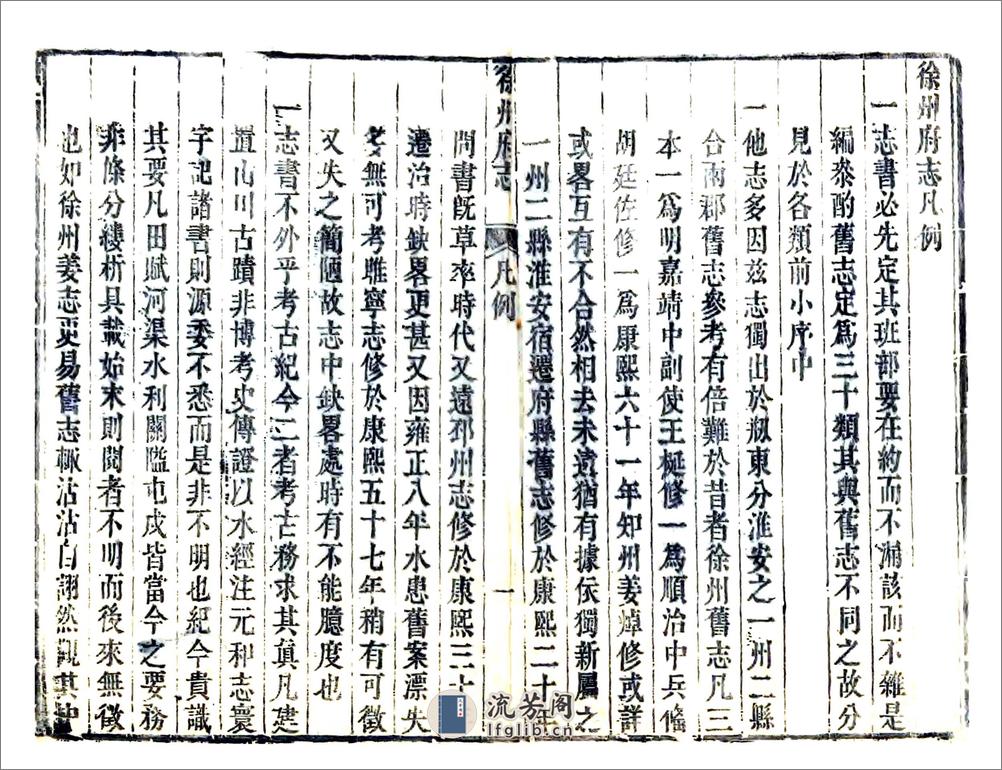 徐州府志凡例
一志書必先定其班部要在約而不漏該而不雜是
編叅酌舊志定為三十類其與舊志不同之故分
見於各類前小序中
一他志多因兹志獨出於剏東分淮安之一州二縣
台兩郡舊志參考有倍難於昔者徐州舊志凡三
本一為明嘉靖中副使王梴修一為順治中兵備
胡廷佐修一為康熙六十一年知州姜焯修或詳
或畧互有不合然相去未遠猶有據依獨新屬之
一州二縣淮安宿遷府縣舊志修於康熙二十年
徐州府志
凡例
一
間書旣草率時代又遠邳州志修於康熙三十
遷治時缺畧更甚又因雍正八年水患舊案漂失
多無可考睢寧志修於康熙五十七年稍有可徵
又失之簡陋故志中缺畧處時有不能臆度也
一志書不外乎考古紀今二者考古務求其眞凡建
置山川古蹟非博考史傳證以水經注元和志寰
宇記諸書則源委不悉而是非不明也紀今貴識
其要凡田賦河渠水利關隘屯戍皆當今之要務
非條分縷析具載始末則閱者不明而後來無徵
也如徐州姜志更易舊志輒沾沾自詡然觀其
流芳阁
lfglib.cn